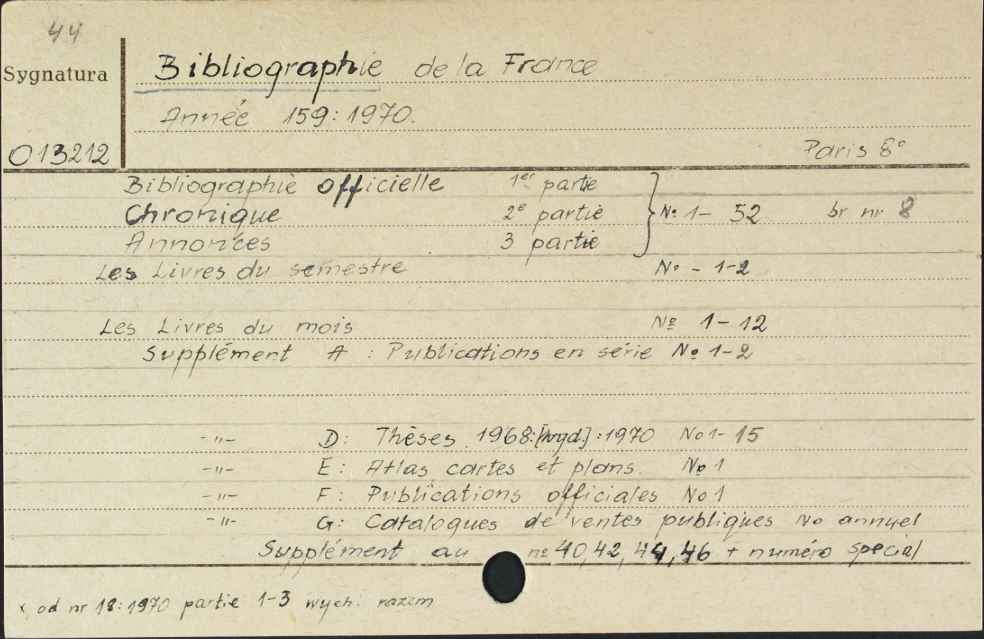 44
Sygnatura
Bibliographie de la France
Année 159:1970.
013212
Paris 8°
Bibliographie officielle 1er partie
Chronique 2e partie } No 1- 52 br nr 8
Annonces 3 partie
Les Livres du semestre No - 1-2
Les Livres du mois No 1-12
Supplément A : Publications en série No 1-2
-"- D: Thèses 1968:[wyd.]:1970 No 1-15
-"- E: Atlas cartes et plans. No 1
-"- F: Publications officiales No 1
-"- G: Catalogues de ventes publiques No annuel
Supplément au no 40,42,44,46 + numéro spécial
x od nr 18:1970 partie 1-3 wych. razem